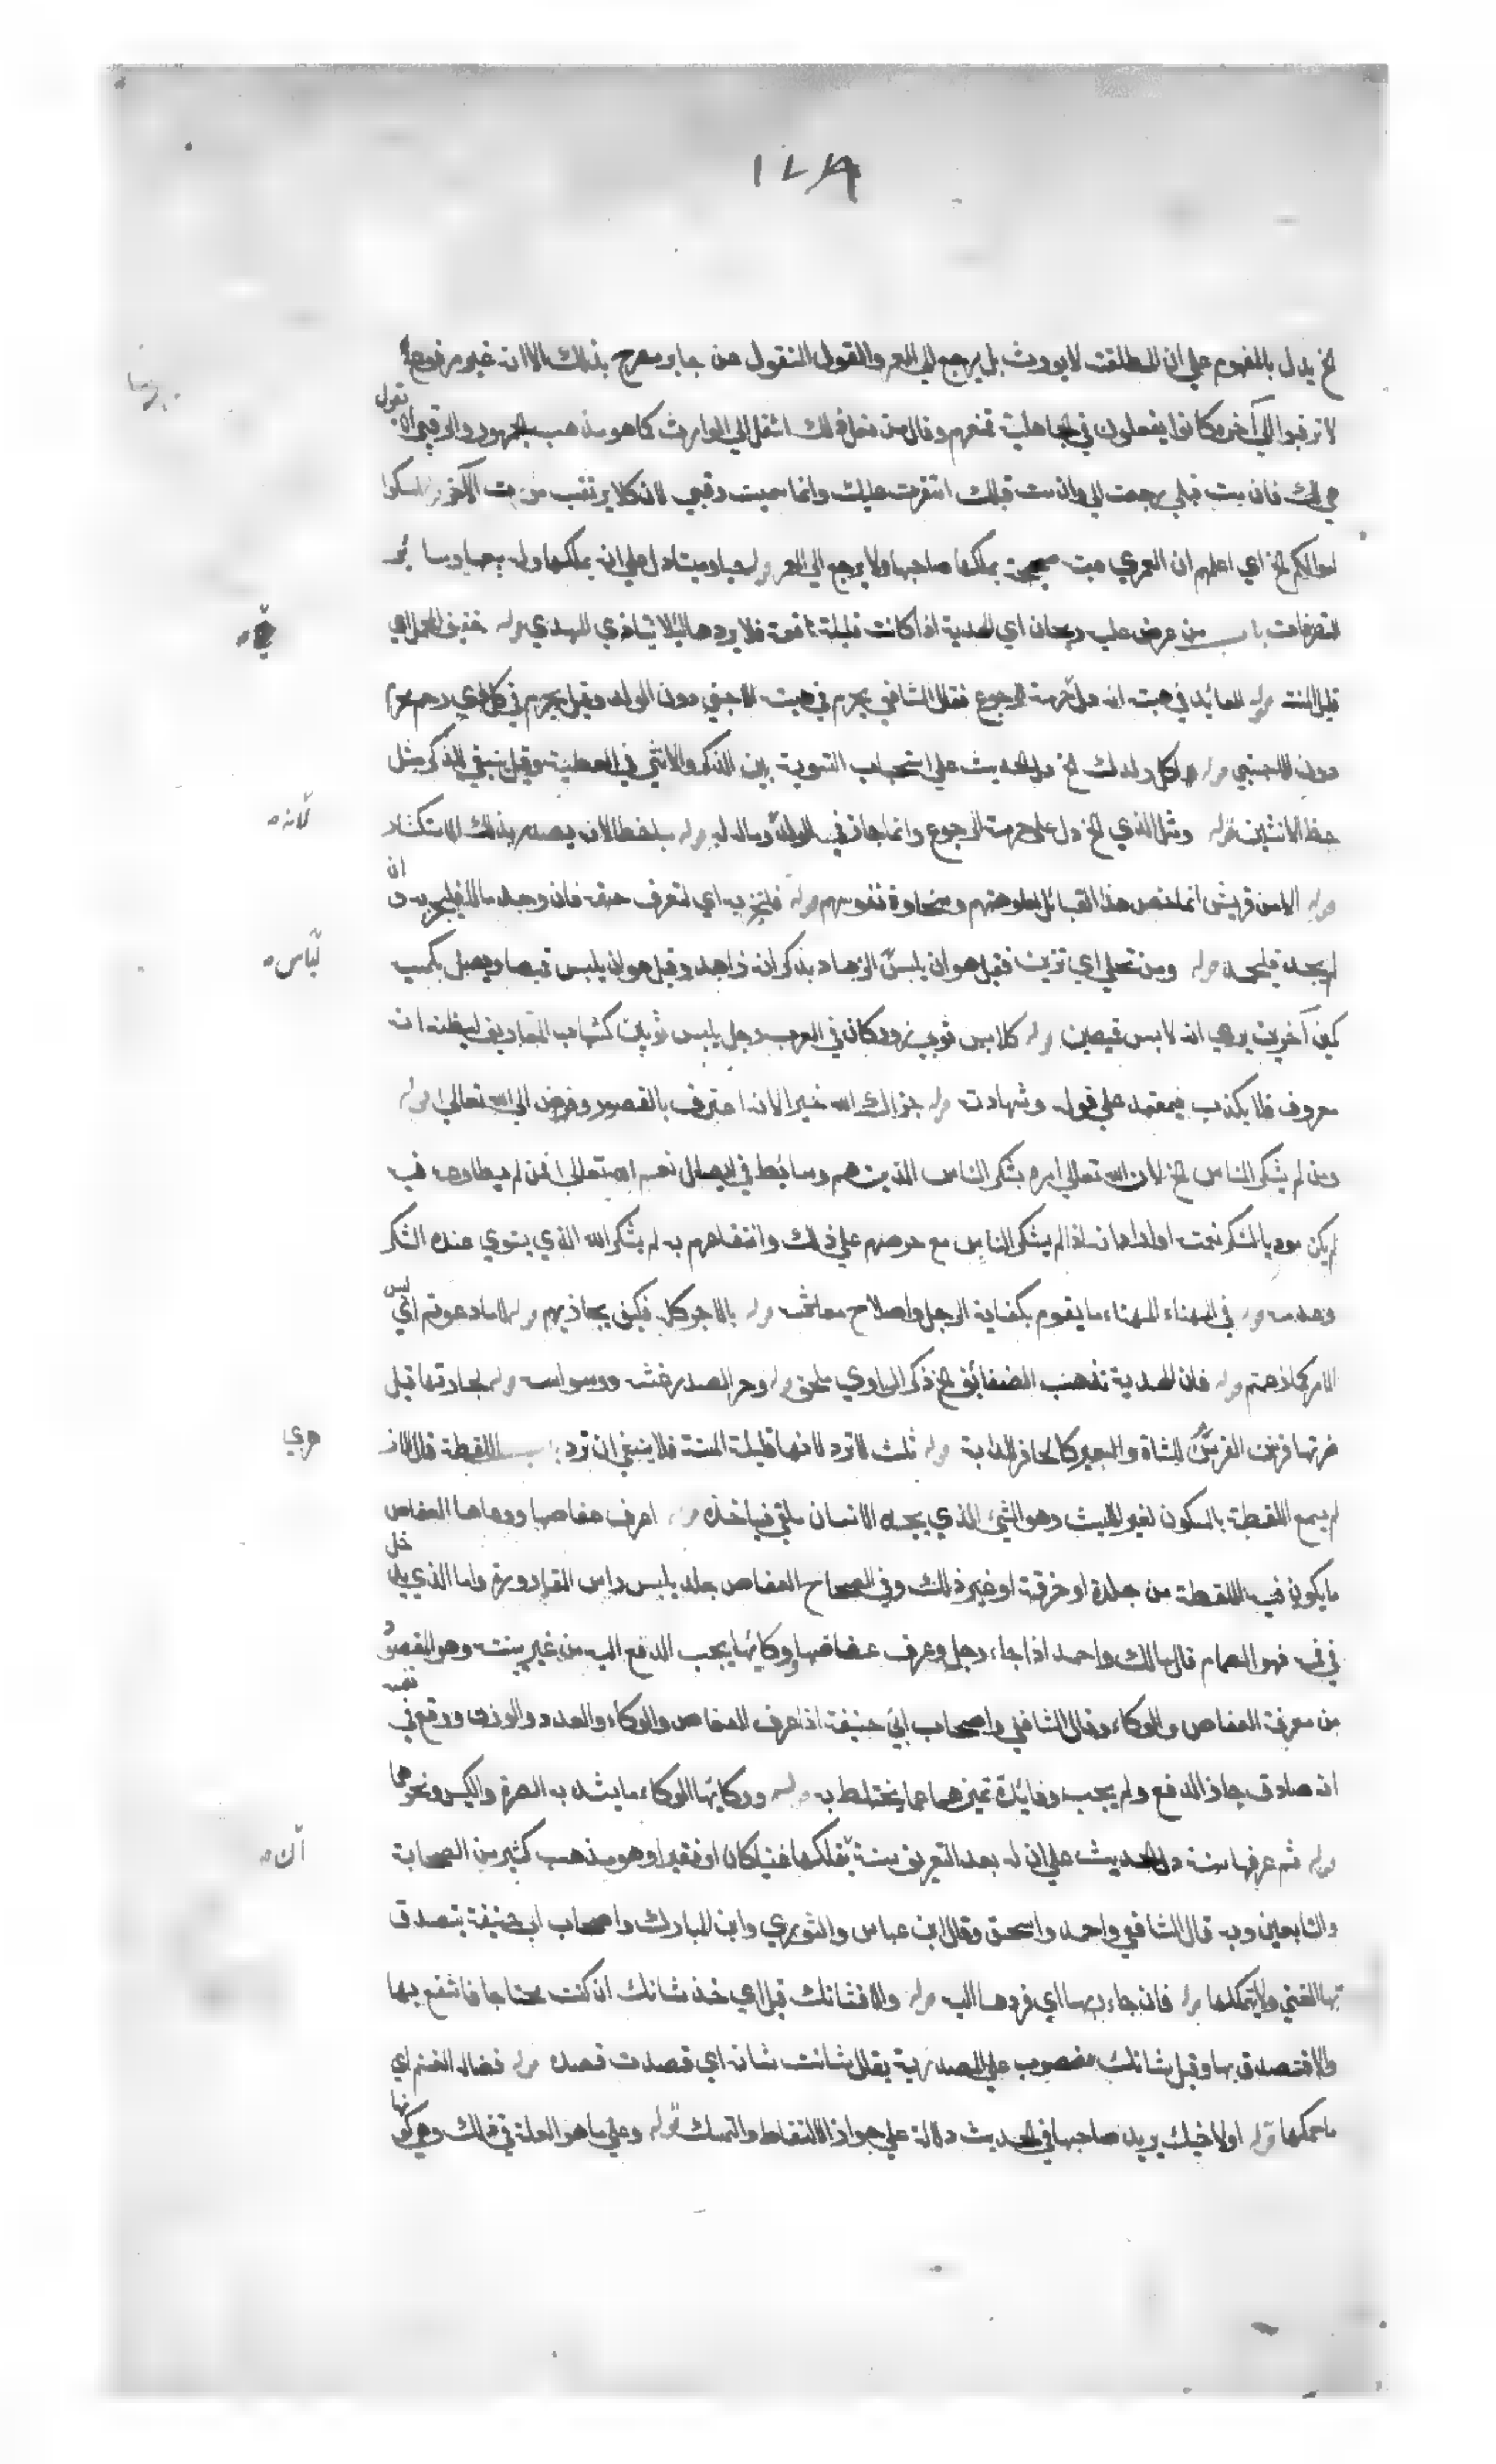 ١٧٨
الخ يدل بالمفهوم علي ان المطلقة لا يورث بل يرجع الي المعمر والقول المنقول عن جابر مصرح بذلك الا انه غير مرفوع
لا ترقبوا الي آخره كانوا يفعلون في الجاهلية فمنعهم وقال من فعل ذلك انتقل الي الوارث كما هو مذهب الجمهور والرقبي ان تقول
هي لك فان مت قبلي رجعت الي وان مت قبلك استقرت عليك وانما سميت رقبي لان كلا يرتقب موت الآخر امسكوا
اموالكم الخ اي اعلمهم ان العمري هبة صحيحة يملكها صاحبها ولا يرجع الي المعمر قوله حيا وميتا دل علي ان يملكها وله بيعها وسائر
التصرفات باب من عرض عليه ريحان اي الهدية اذا كانت قليلة نافعة فلا يردها لئلا يتاذي المهدي قوله خفيف المحمل اي
قليل المنة قوله العائد في هبته انه دل حرمة الرجوع فقال الشافعي يحرم في هبته للاجنبي دون الولد وقيل يحرم في كل ذي رحم محرم
دون الاجنبي قوله اكل ولدك الخ دل الحديث علي استحباب التسوية بين الذكر والانثي في العطية وقيل ينبغي للذكر مثل
حظ الانثيين قوله ومثل الذي الخ دل علي حرمة الرجوع وانما جاز في الولد لانه وماله له قوله ساخطا لان يصدر بذلك الاستكثار
قوله الا من قريش انما خص هذا القبائل لعلو همتهم وسخاوة نفوسهم قوله فليجز به اي لتعرف حقه فان وجد مالا فليجز به وان
لم يجد فليحمده قوله ومن تحلي اي تزين فقيل هو ان يلبس لباس الزهاد يذكر انه زاهد وقيل هو ان يلبس قميصا ويصل بكميه
كمين آخرين يري انه لابس قميصين قوله كلابس ثوبي زور كان في العرب رجل يلبس ثوبين كثياب المعاريف ليظن انه
معروف فلا يكذب فيعتمد علي قوله وشهادته قوله جزاك الله خيرا لانه اعترف بالقصور وفوض الي الله تعالي قوله
ومن لم يشكر الناس الخ لان الله تعالي امره بشكر الناس الذين هم وسائط في ايصال نعم الله تعالي فمن لم يطاوعه فيه
لم يكن موديا لشكر نعمته او اراد انه اذا لم يشكر الناس مع حرصهم علي ذلك وانتفاعهم به لم يشكر الله الذي يستوي عنده الشكر
وعدمه قوله في المهناء المهناء ما يقوم بكفاية الرجل واصلاح معاشه قوله بالاجر كله فكيف يجازيهم قوله لا ما دعوتم اي ليس
الامر كما زعمتم قوله فان الهدية تذهب الضغائن الخ ذكر الراوي قوله وحر الصدر غشه ووسواسه قوله لجارتها قيل
ضرتها فرسن الفرسن للشاة والبعير كالحافر للدابة قوله ثلث لا ترد لانها قليلة المنة فلا ينبغي ان ترد باب اللقطة
لم يسمع اللقطة بالسكون لغير الليث وهو الشئ الذي يجده الانسان ملقي فياخذه قوله اعرف عفاصها ووعاها العفاص
ما يكون فيه اللقطة من جلدة او خرقة او غير ذلك وفي الصحاح العفاص جلد يلبس راس القارورة واما الذي يدخل
في فيه فهو الصمام قال مالك واحمد اذا جاء رجل وعرف عفاصها ووكائها يجب الدفع اليه من غير بينة وهو المقصود
من معرفة العفاص والوكاء وقال الشافعي واصحاب ابي حنيفة اذا عرف العفاص والوكاء والعدد والوزن ووقع في نفسه
انه صادق جاز الدفع ولم يجب وفائدة تميزهما عما يختلط به قوله ووكائها الوكاء ما يشد به الصرة والكيس ونحوهما
قوله ثم عرفها سنة دل الحديث علي ان له بعد التعريف سنة ان يتملكها غنيا كان او فقيرا وهو مذهب كثير من الصحابة
والتابعين وبه قال الشافعي واحمد واسحق وقال ابن عباس والثوري وابن المبارك واصحاب ابي حنيفة يتصدق
بها الغني ولا يتملكها قوله فان جاء ربها اي فردها اليه قوله والا فشانك قيل اي خذ شانك ان كنت محتاجا فانتفع بها
والا فتصدق بها وقيل شانك منصوب علي المصدرية يقال شانت شانه اي قصدت قصده قوله فضالة الغنم اي
ما حكمها قوله او لاخيك يريد صاحبها في الحديث دلالة علي جواز الالتقاط والتملك قوله وعلي ما هو العلة في ذلك وهي كونها
لانه
لباس
ان